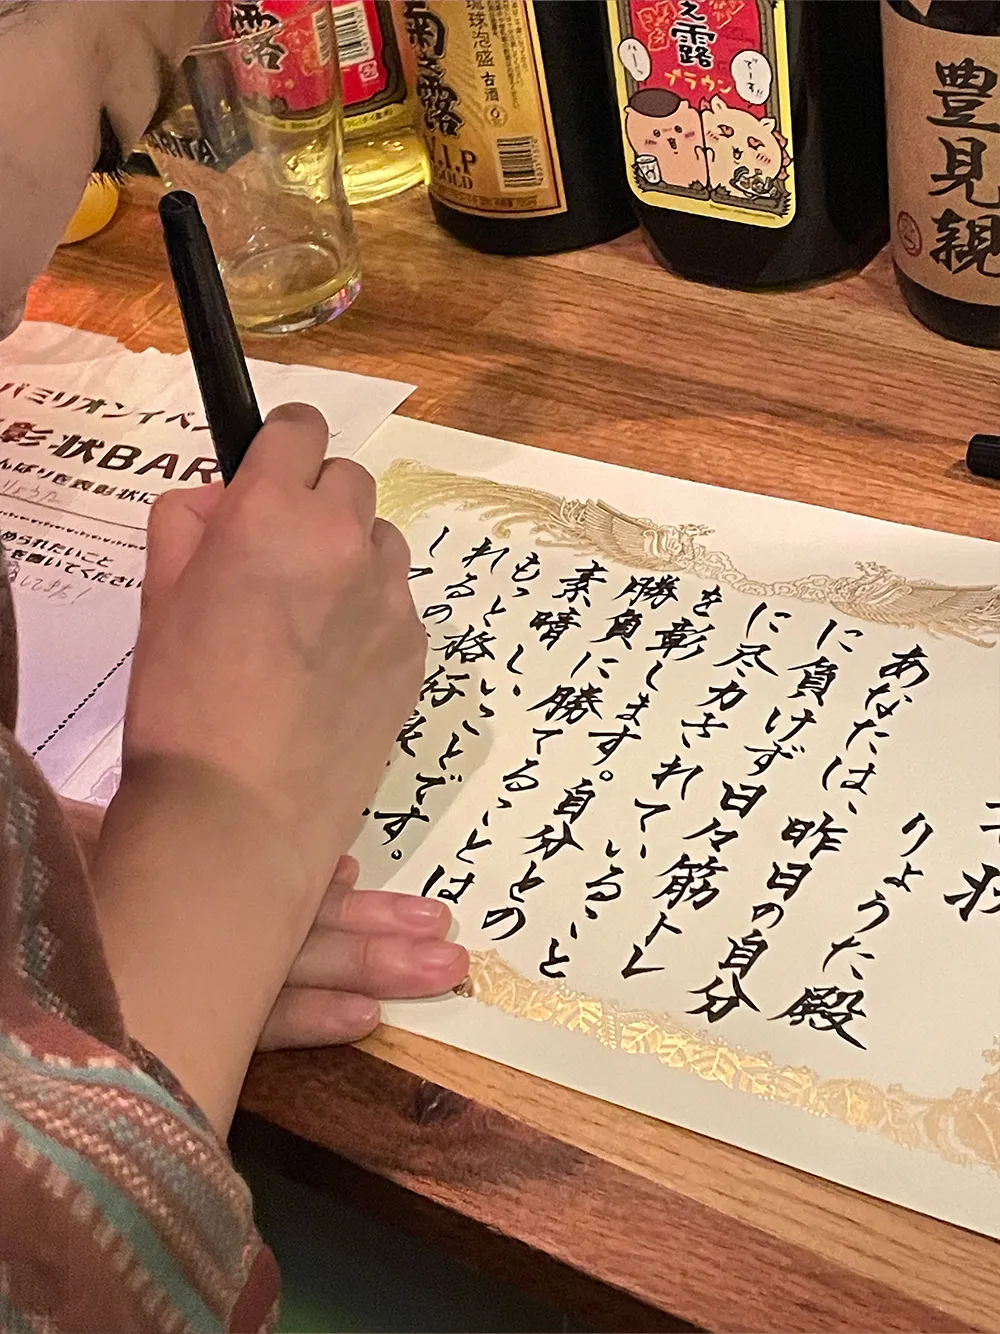 菊之露
琉球泡盛 古酒
V.I.P
GOLD
之露
ブラウン
でーす!!
豊見親
バミリオンイベ
彰状BAR
んばりを表彰状に
りょうた
められたいこと
を書いてください
状
りょうた殿
あなたは、昨日の自分
に負けず日々筋トレ
に尽力されていること
を彰します。自分との
勝負に勝てることは
素晴しいことです。
もっと格好良
れるの
し